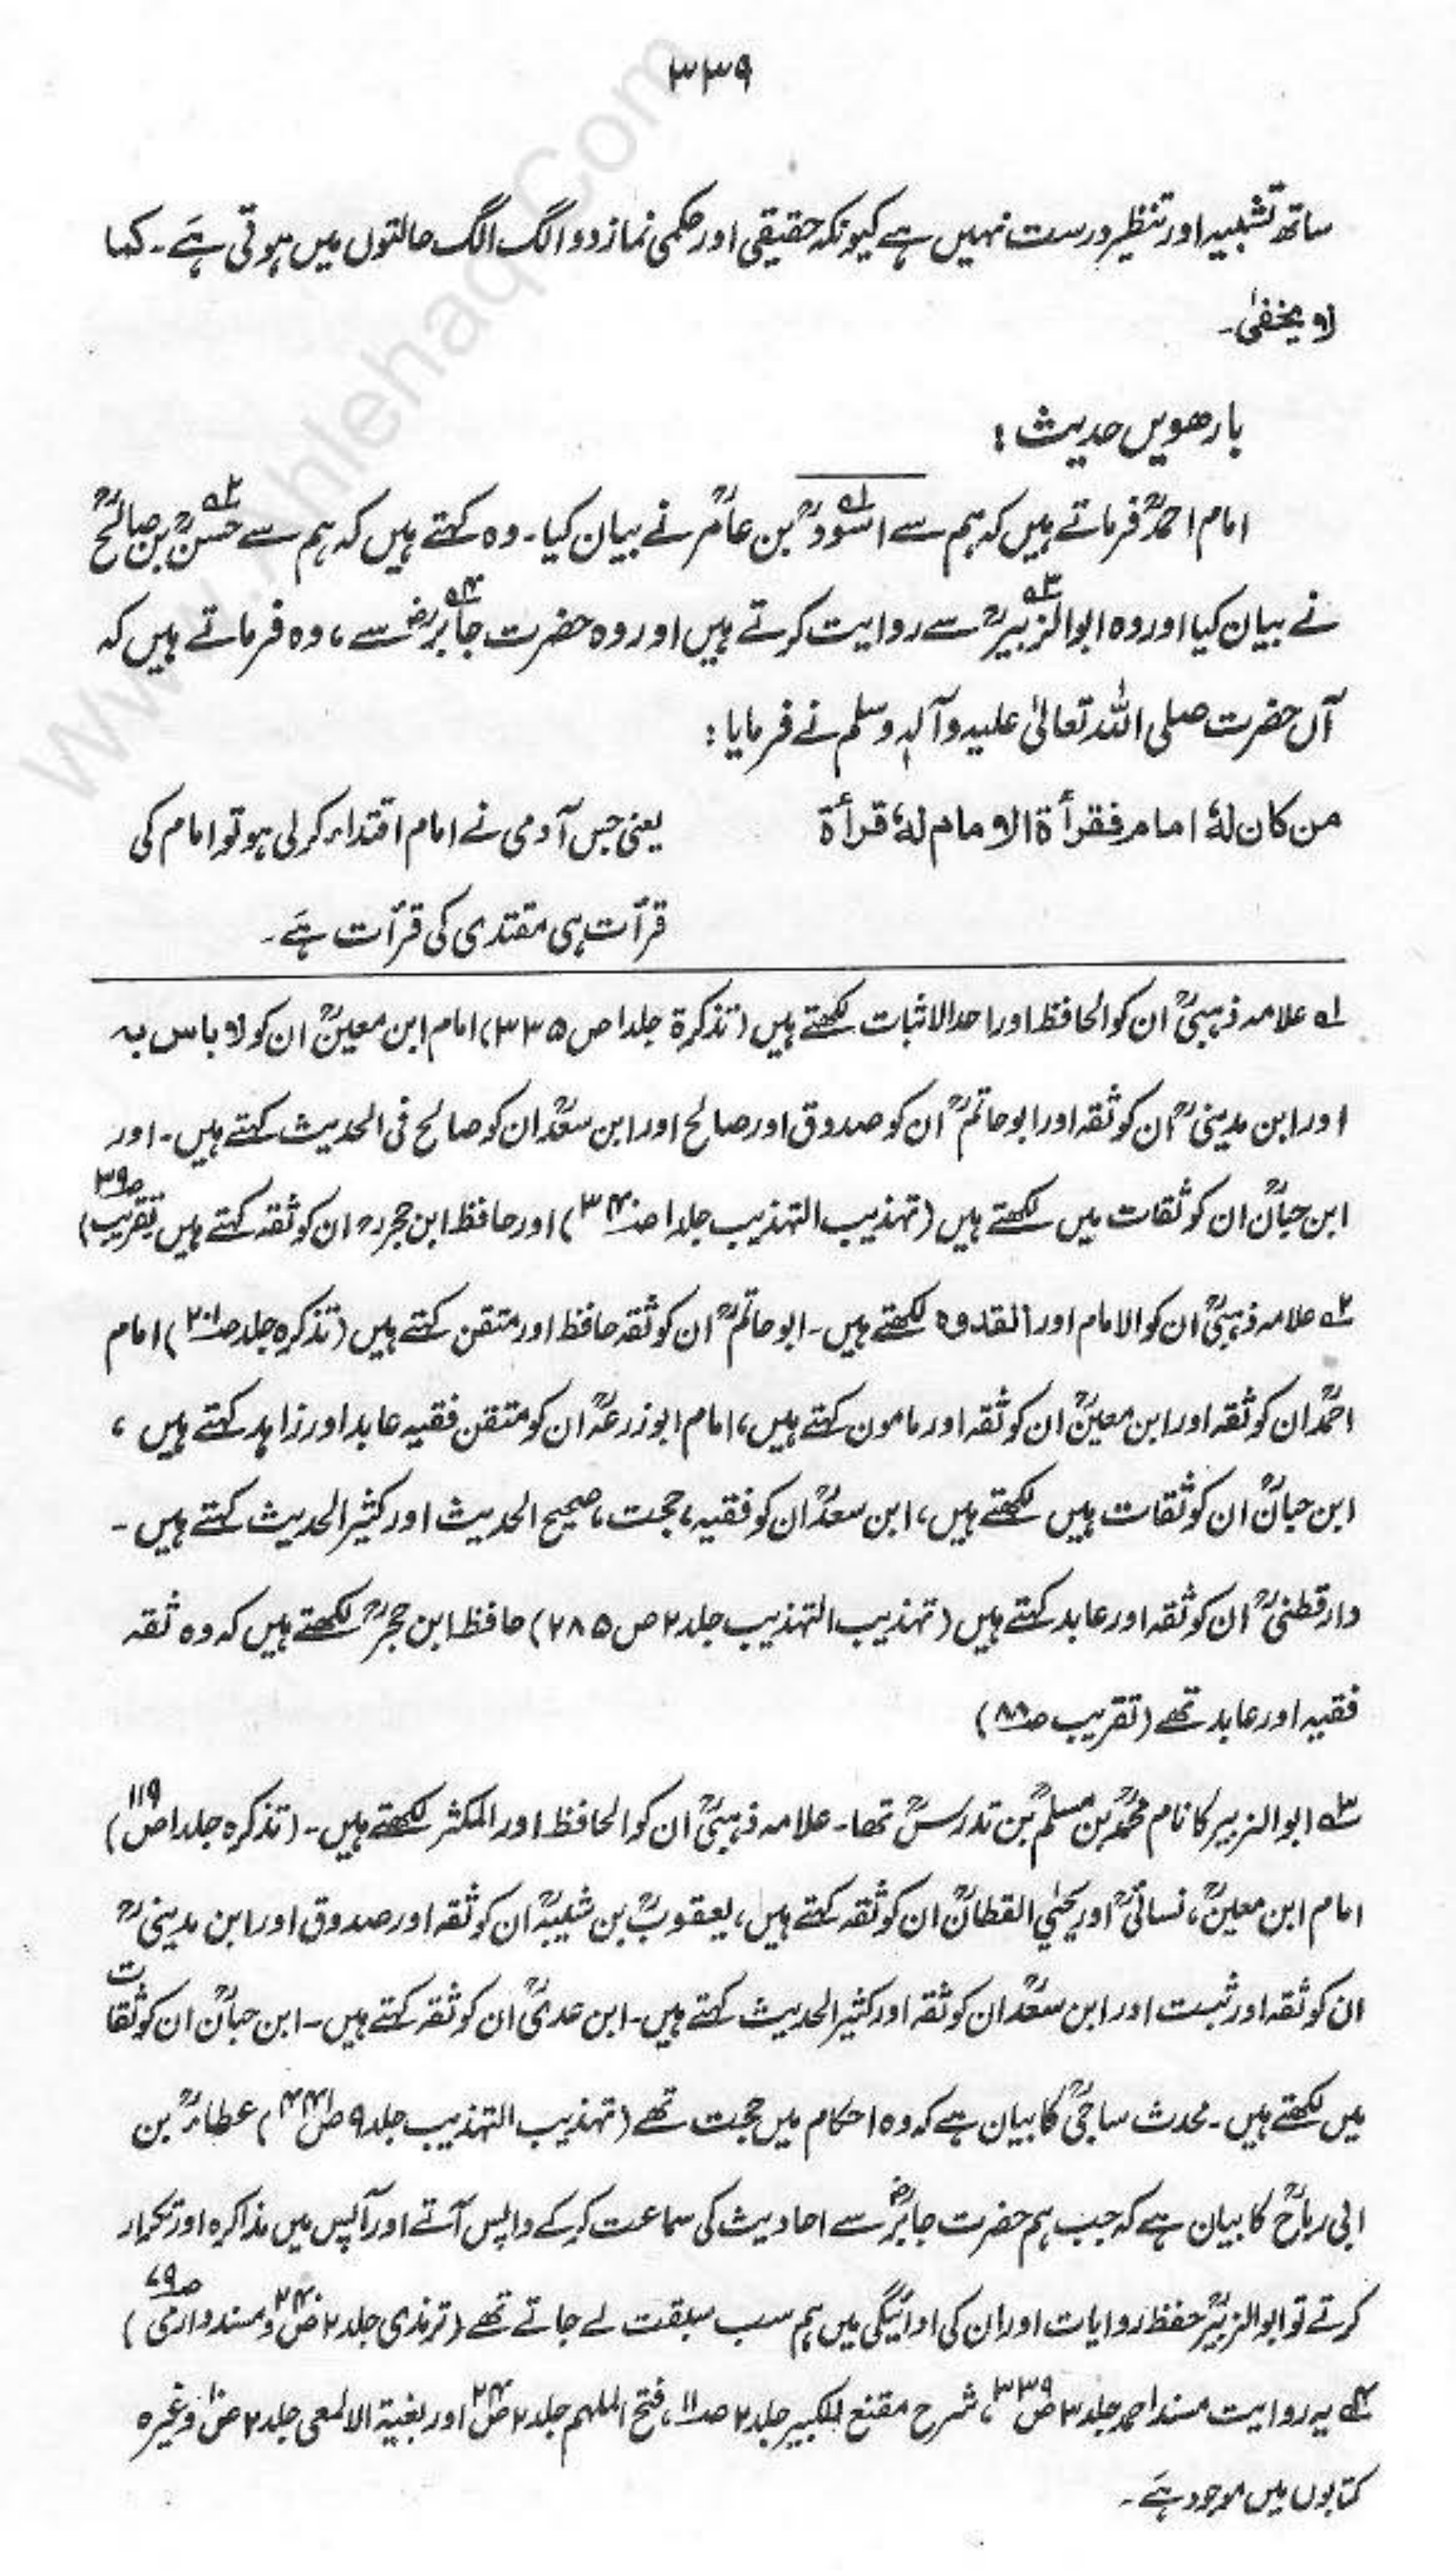 ۳۳۹
ساتھ تشبیہ اور تنظیر درست نہیں ہے کیونکہ حقیقی اور حکمی نماز دو الگ الگ حالتوں میں ہوتی ہے۔ کما
لا یخفیٰ۔
بارھویں حدیث :
امام احمدؒ فرماتے ہیں کہ ہم سے اسودؒ بن عامرؒ نے بیان کیا۔ وہ کہتے ہیں کہ ہم سے حسنؒ بن صالحؒ
نے بیان کیا اور وہ ابوالزبیرؒ سے روایت کرتے ہیں اور وہ حضرت جابرؓ سے، وہ فرماتے ہیں کہ
آں حضرت صلی اللہ تعالیٰ علیہ وآلہٖ وسلم نے فرمایا :
من کان لهٗ امام فقرأة الامام لهٗ قرأة
یعنی جس آدمی نے امام اقتداء کر لی ہو تو امام کی
قرأت ہی مقتدی کی قرأت ہے۔
۱ه علامہ ذہبیؒ ان کو الحافظ اور احد الاثبات لکھتے ہیں (تذکرۃ جلد۱ ص۳۳۵) امام ابن معینؒ ان کو لا باس بہ
اور ابن مدینیؒ ان کو ثقہ اور ابوحاتمؒ ان کو صدوق اور صالح اور ابن سعدؒ ان کو صالح فی الحدیث کہتے ہیں۔ اور
ابن حبانؒ ان کو ثقات میں لکھتے ہیں (تہذیب التہذیب جلد۱ ص۳۴۰) اور حافظ ابن حجرؒ ان کو ثقہ کہتے ہیں تقریب ص۳۹)
۲ه علامہ ذہبیؒ ان کو الامام اور القدوہ لکھتے ہیں۔ ابوحاتمؒ ان کو ثقہ حافظ اور متقن کہتے ہیں (تذکرہ جلد ص۲۰۱) امام
احمدؒ ان کو ثقہ اور ابن معینؒ ان کو ثقہ اور مامون کہتے ہیں، امام ابوزرعہؒ ان کو متقن فقیہ عابد اور زاہد کہتے ہیں،
ابن حبانؒ ان کو ثقات میں لکھتے ہیں، ابن سعدؒ ان کو فقیہ، حجت، صحیح الحدیث اور کثیر الحدیث کہتے ہیں۔
دارقطنیؒ ان کو ثقہ اور عابد کہتے ہیں (تہذیب التہذیب جلد۲ ص۲۸۵) حافظ ابن حجرؒ لکھتے ہیں کہ وہ ثقہ
فقیہ اور عابد تھے (تقریب ص۸۸)
۳ه ابوالزبیر کا نام محمدؒ بن مسلمؒ بن تدرسؒ تھا۔ علامہ ذہبیؒ ان کو الحافظ اور المکثر لکھتے ہیں۔ (تذکرہ جلد۱ ص۱۱۹)
امام ابن معینؒ، نسائیؒ اور یحییٰ القطانؒ ان کو ثقہ کہتے ہیں، یعقوبؒ بن شیبہؒ ان کو ثقہ اور صدوق اور ابن مدینیؒ
ان کو ثقہ اور ثبت اور ابن سعدؒ ان کو ثقہ اور کثیر الحدیث کہتے ہیں۔ ابن عدیؒ ان کو ثقہ کہتے ہیں۔ ابن حبانؒ ان کو ثقات
میں لکھتے ہیں۔ محدث ساجیؒ کا بیان ہے کہ وہ احکام میں حجت تھے (تہذیب التہذیب جلد۹ ص۴۴۱) عطاءؒ بن
ابی رباحؒ کا بیان ہے کہ جب ہم حضرت جابرؓ سے احادیث کی سماعت کر کے واپس آتے اور آپس میں مذاکرہ اور تکرار
کرتے تو ابوالزبیرؒ حفظ روایات اور ان کی ادائیگی میں ہم سب سبقت لے جاتے تھے (ترمذی جلد۲ ص۲۴۰ و مسند دارمی ص۷۹)
۴ه یہ روایت مسند احمد جلد۳ ص۳۳۹، شرح مقنع الکبیر جلد۲ ص۱۱، فتح الملہم جلد۲ ص۲۴ اور بغیۃ الالمعی جلد۲ وغیرہ
کتابوں میں موجود ہے۔
www.Ahlehaq.Com